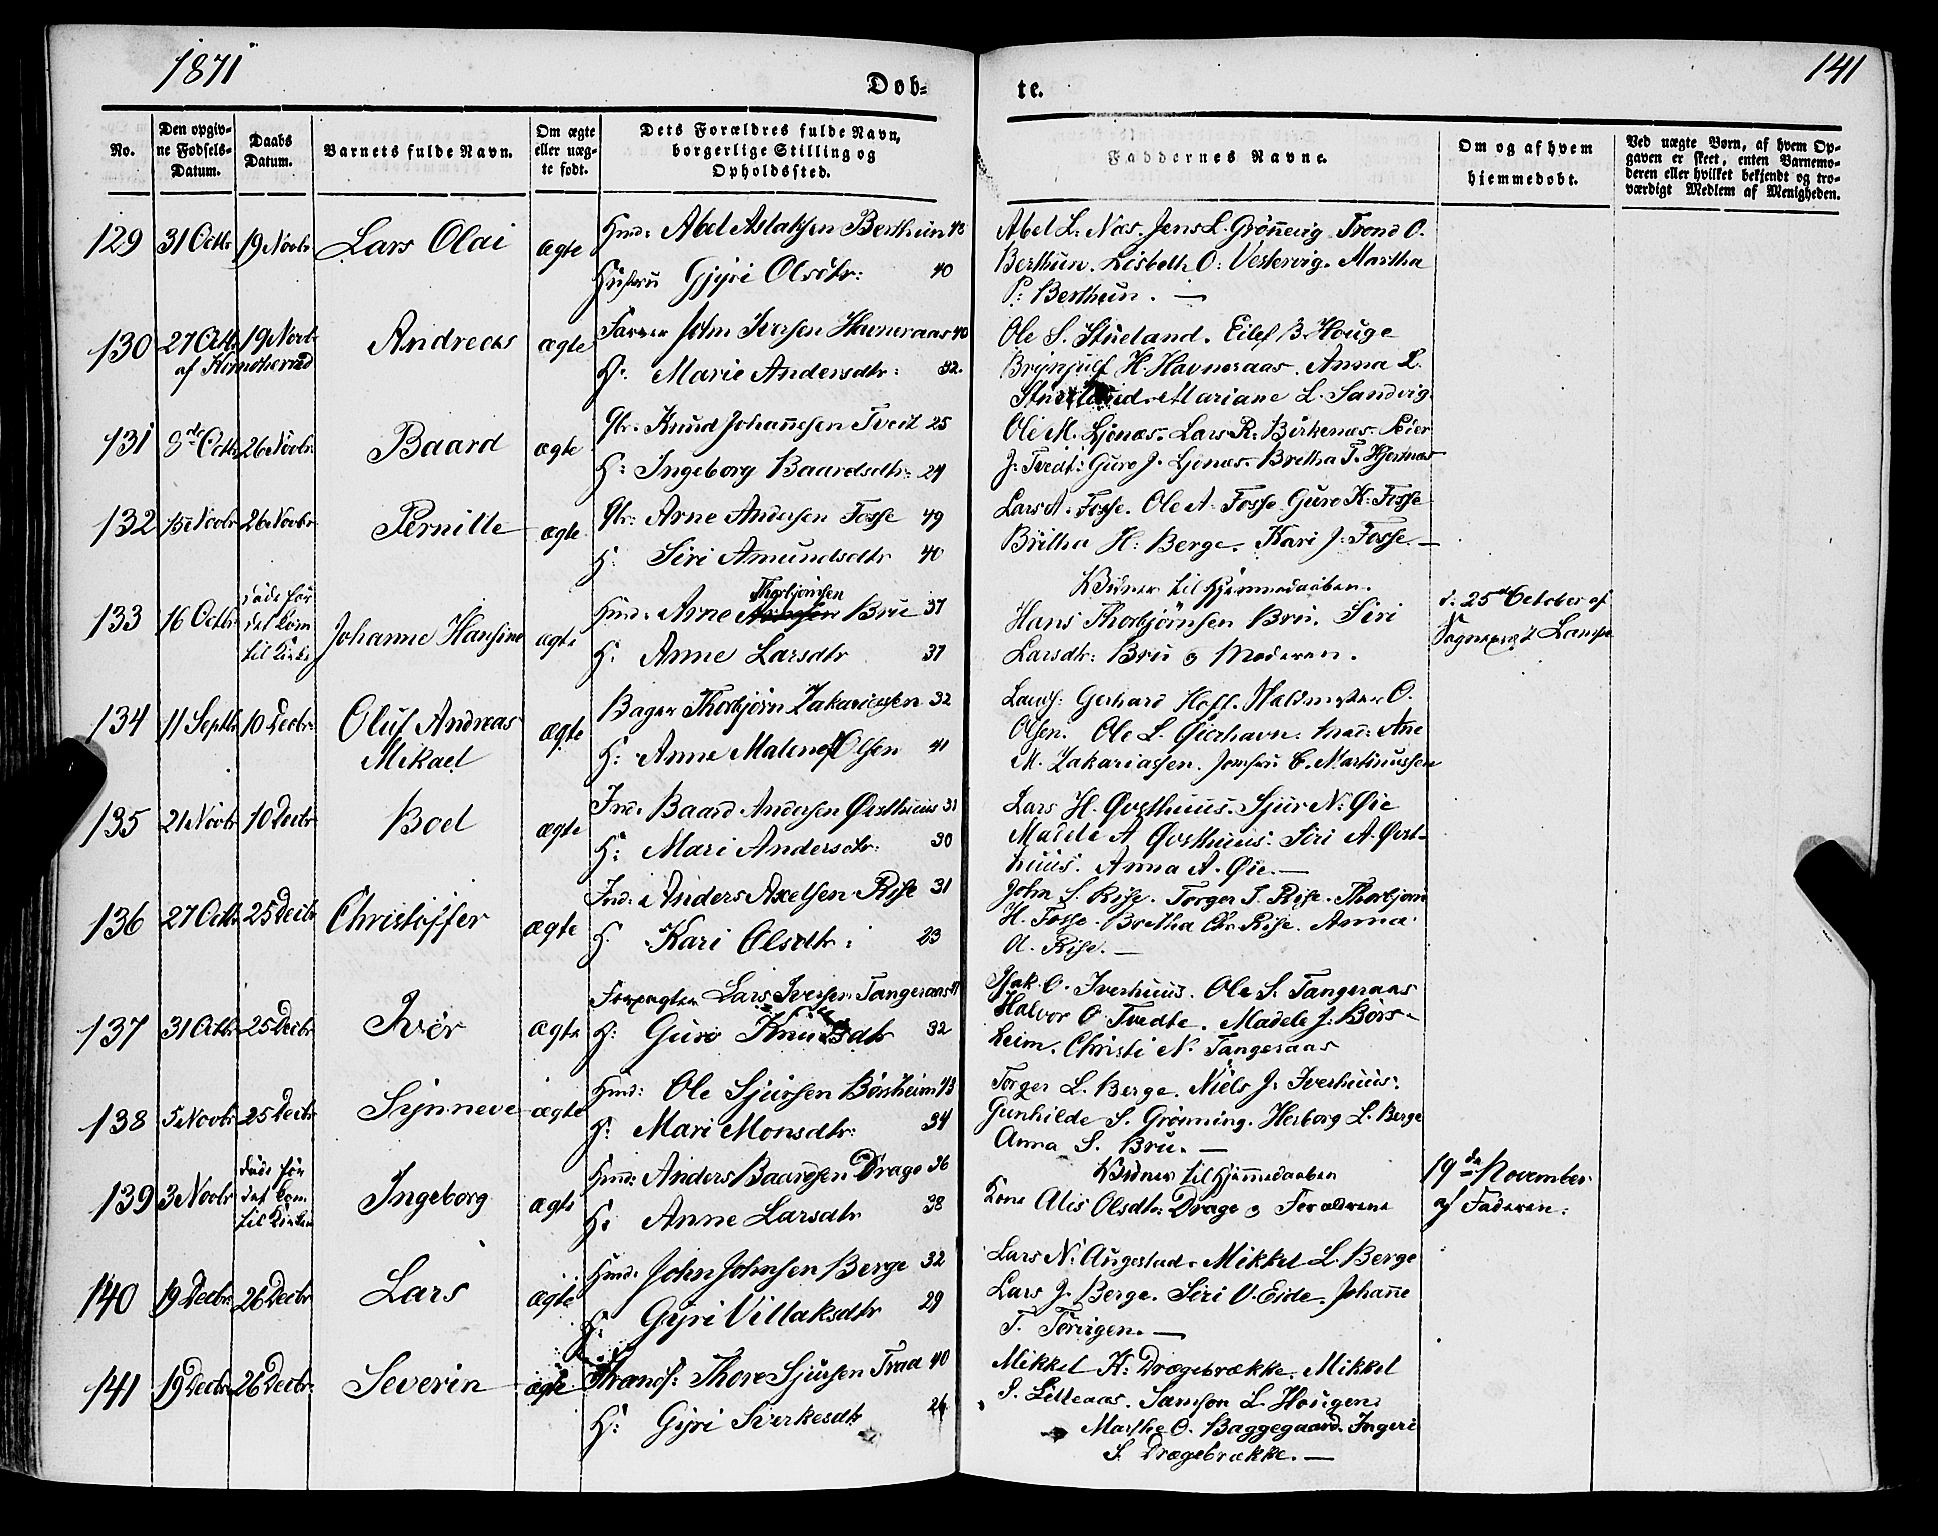 1871
141
Dob-
te.
No.
Den opgiv-
ne Fodsels-
Datum.
Daabs
Datum.
Barnets fulde Navn.
Om ægte
eller uæg-
te fodt.
Dets Forældres fulde Navn,
borgerlige Stilling og
Opholdssted.
Faddernes Navne.
Om og af hvem
hjemmedobt.
Ved uægte Born, af hvem Op-
gaven er skeet, enten Barnemo-
deren eller hvilket bekjendt og tro-
værdigt Medlem af Menigheden.
129 31 Octbr 19 Novbr Lars Olai ægte
Gmd: Abel Aslaksen Berthun 48
Hustru Gjyri Olsdtr: 40
Abel L. Næs. Jens L. Grönnevig Trond O.
Berthun. Lisbeth O: Vestervig. Martha
P: Berthun. —
130 27 Octbr 19 Novbr Andreas ægte
af
John Iversen Havneraas 40
H: Marie Andersdtr: 32.
Ole S. Stueland. Eilef B. Houge
Brynjulf H. Havneraas. Anna L.
Stueland. Mariane L. Sandvig.
131 8de Octbr 26 Novbr Baard ægte
Gbr. Knud Johannesen Tveit 25
H: Ingeborg Baardsdtr: 24
Ole M. Ljonæs. Lars R. Birkenæs. Peder
J. Tvedt: Guro J. Ljonæs. Bretha T. Hjertnæs
132 15 Novbr 26 Novbr Pernille ægte
Gbr: Arne Andersen Fosse 49
H: Siri Amundsdtr 40
Lars A. Fosse. Ole A. Fosse. Guro K. Fosse
Britha H: Berge. Kari J. Fosse. —
133 16 Octbr
döde för
det kom
til Kirke
Johanne Hansine ægte
Thorbjörnsen
Gmd: Arne Bru 37
H: Anne Larsdtr 37
Vidner til Hjemmedaaben.
Hans Thorbjörnsen Bru. Siri
Larsdtr: Bru og Moderen.
d: 25de October af
Sognepræst Lampe
134 11 Septbr 10 Decbr: Oluf Andreas
Mikael
ægte
Bager Thorbjörn Zakariasen 32
H: Anne Malene Olsen 41
Gerhard O.
Olsen. Ole L. Gierhavn. Mad: Ane
M. Zakariassen. Jomfru C. Martinussen
135 21 Novbr 10 Decbr Boel ægte
Ind: Baard Andersen Øvsthuus 31
H: Mari Andersdtr: 30
Lars H. Øvsthuus. Sjur N. Øie
Madele A Øvsthuus. Siri A. Øvst-
huus. Anna A. Øie. —
136 27 Octbr 25 Decbr Christoffer ægte
Ind: Anders Axelsen Rise 31
H. Kari Olsdtr: 23
John S. Rise. Torger T. Rise. Thorbjörn
H. Fosse. Bretha Chr. Rise. Anna
A. Rise. —
137 31 Octbr 25 Decbr Ivër ægte
Forpagter Lars Iversen Tangeraas
H: Guro Knudsdtr 32
Isak O. Iverhuus. Ole S. Tangeraas
Halvor O Tvedte. Madele J. Börs-
heim. Christi N. Tangeraas
138 5 Novbr 25 Decbr Synneve ægte
Gmd: Ole Sjursen Börsheim 43
H: Mari Monsdtr: 34
Torger L. Berge. Niels J. Iverhuus.
Gunhilde S. Grönning. Herborg L. Berge
Anna S. Bru. —
139 3 Novbr
döde för
det kom
til Kirken
Ingeborg ægte
Gmd: Anders Baardsen Drage 36
H: Anne Larsdtr 38
Vidner til Hjemmedaaben
Kone Alis Olsdtr: Drage og Forældrene
19de November
af Faderen.
140 19 Decbr 26 Decbr Lars ægte
Gmd. John Johnsen Berge 32
H: Gyri Villaksdtr 29
Lars N. Augestad. Mikkel L. Berge
Lars J. Berge. Siri O. Eide. Johanne
T. Törvigen. —
141 19 Decbr 26 Decbr Severin ægte
Thore Sjursen Traa 40
H: Gyri Sverkesdtr 26
Mikkel K: Drægebrække. Mikkel
S. Lilleaas. Samson L. Hougen.
Marthe O. Baggegaard. Ingeri
S. Drægebrække. —